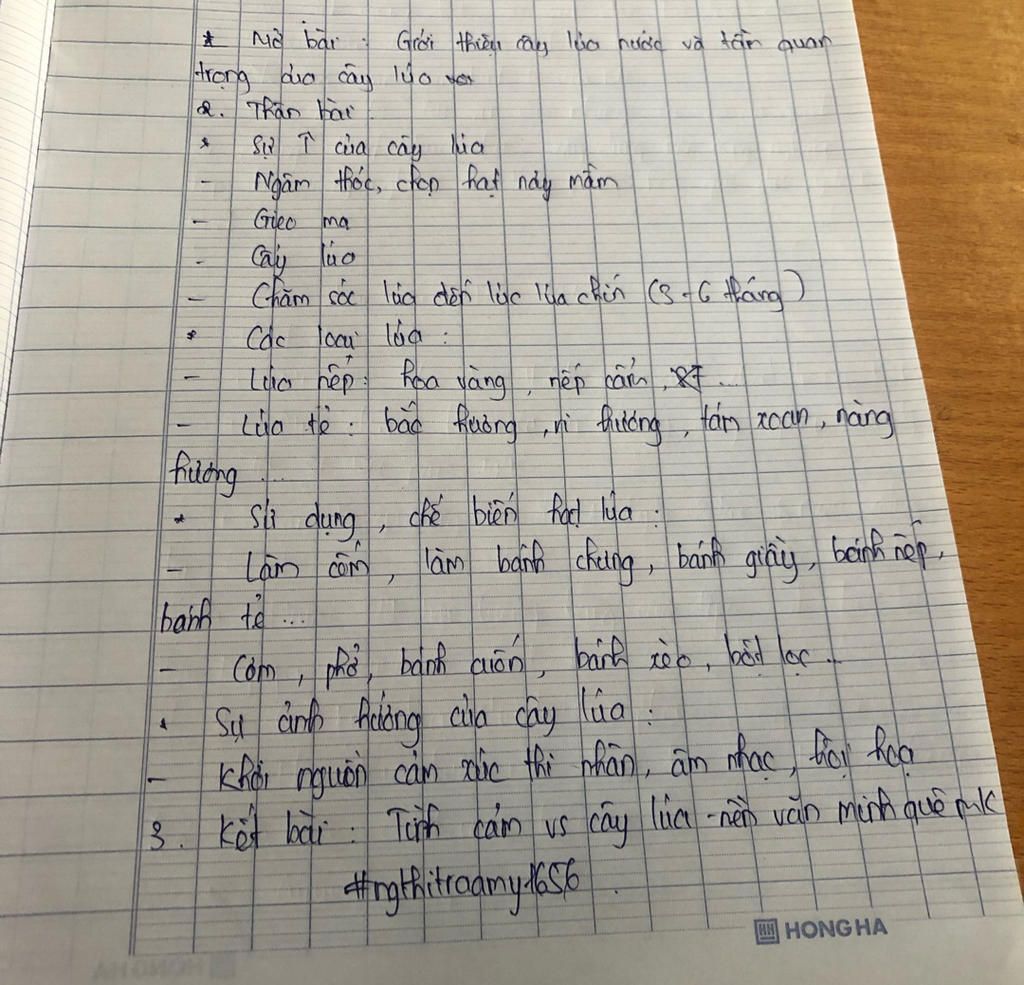 * Mở bài : Giới thiệu cây lúa nước và tầm quan
trọng của cây lúa
2. Thân bài
* Sự ↑ của cây lúa
- Ngâm thóc, chọn hạt nảy mầm
- Gieo mạ
- Cấy lúa
- Chăm sóc lúa đến lúc lúa chín (3-6 tháng)
* Các loại lúa :
- Lúa nếp : hoa vàng, nếp cẩm, ...
- Lúa tẻ : bắc hương, vi hương, tám xoan, nàng
hương ...
* Sử dụng, chế biến hạt lúa :
- Làm cốm, làm bánh chưng, bánh giầy, bánh nếp,
banh tẻ ...
- Cơm, phở, bánh cuốn, bánh xèo, bột lọc ...
* Sự ảnh hưởng của cây lúa :
- Khơi nguồn cảm xúc thi nhân, âm nhạc, hội hoạ
3. Kết bài : Tình cảm vs cây lúa - nền văn minh quê mk
#ngthitraamy1656 .
HH HONG HA